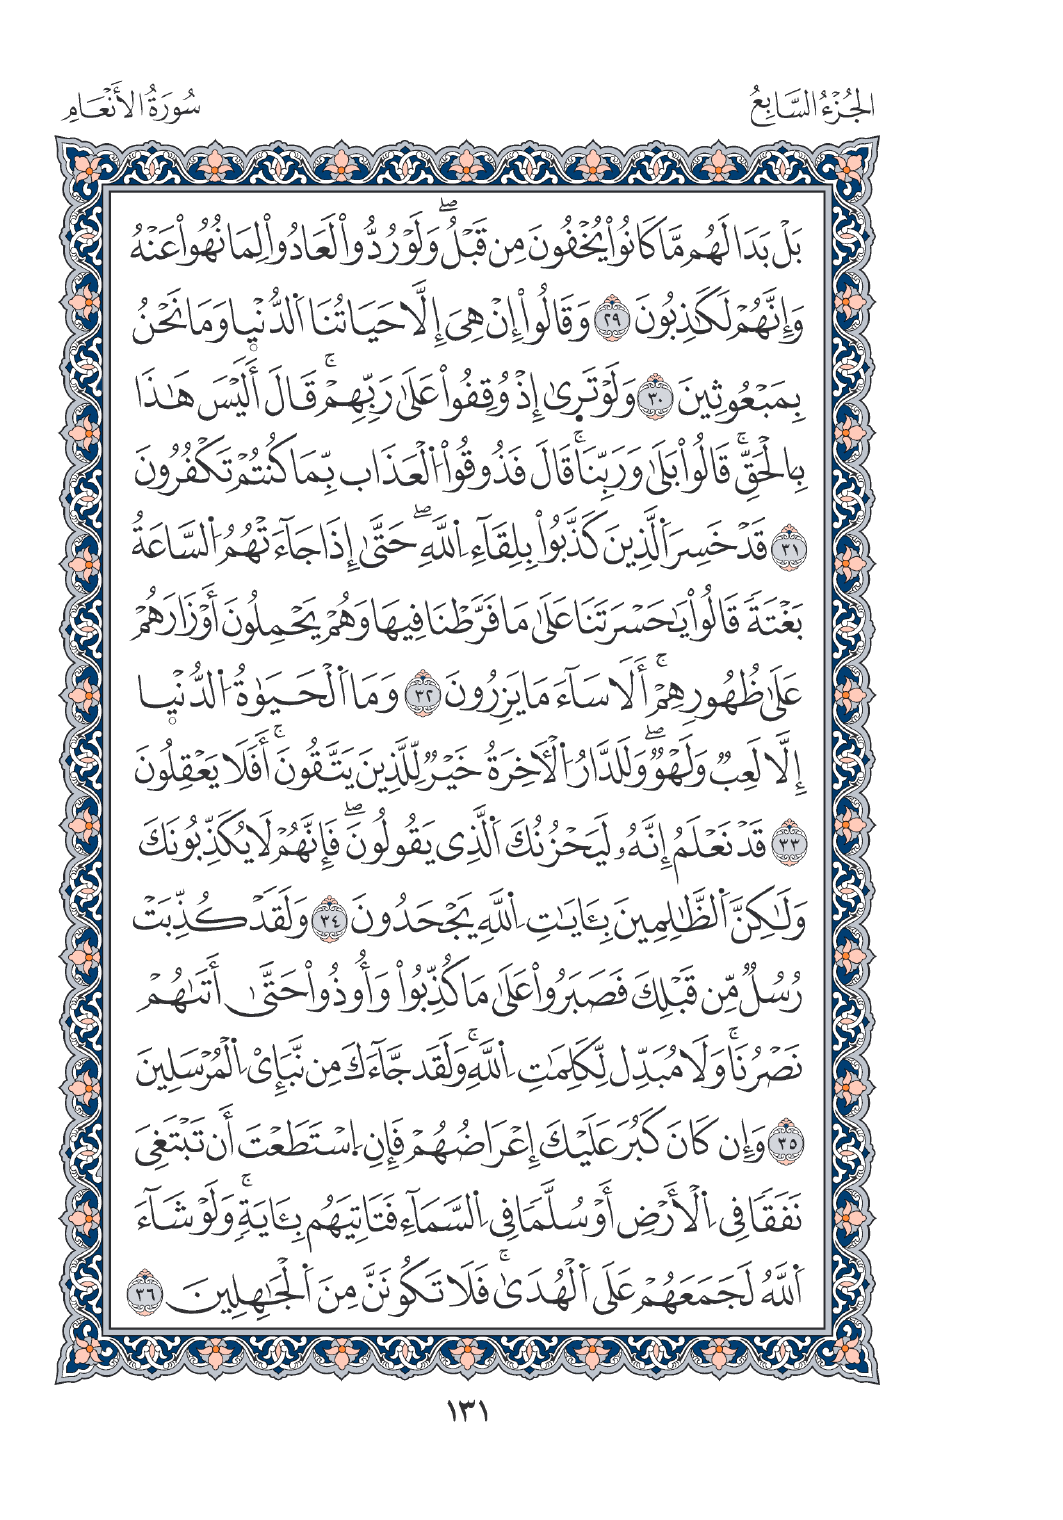 الجُزْءُ السَّابِعُ
سُورَةُ الأَنْعَامِ
بَلْ بَدَا لَهُم مَّا كَانُوا۟ يُخْفُونَ مِن قَبْلُۖ وَلَوْ رُدُّوا۟ لَعَادُوا۟ لِمَا نُهُوا۟ عَنْهُ
وَإِنَّهُمْ لَكَٰذِبُونَ ٢٩ وَقَالُوا۟ إِنْ هِىَ إِلَّا حَيَاتُنَا اَ۬لدُّنْي۪ا وَمَا نَحْنُ
بِمَبْعُوثِينَ ٣٠ وَلَوْ تَر۪ىٰ إِذْ وُقِفُوا۟ عَلَىٰ رَبِّهِمْۚ قَالَ أَلَيْسَ هَٰذَا
بِالْحَقِّۚ قَالُوا۟ بَلَىٰ وَرَبِّنَاۚ قَالَ فَذُوقُوا۟ اُ۬لْعَذَاب بِّمَا كُنتُمْ تَكْفُرُونَ
٣١ قَدْ خَسِرَ اَ۬لَّذِينَ كَذَّبُوا۟ بِلِقَآءِ اِ۬للَّهِۖ حَتَّىٰ إِذَا جَآءَتْهُمُ اُ۬لسَّاعَةُ
بَغْتَةً قَالُوا۟ يَٰحَسْرَتَنَا عَلَىٰ مَا فَرَّطْنَا فِيهَا وَهُمْ يَحْمِلُونَ أَوْزَارَهُمْ
عَلَىٰ ظُهُورِهِمْۚ أَلَا سَآءَ مَا يَزِرُونَ ٣٢ وَمَا اَ۬لْحَيَوٰةُ اُ۬لدُّنْي۪ا
إِلَّا لَعِبٌ وَلَهْوٌۖ وَلَلدَّارُ اُ۬لْأٓخِرَةُ خَيْرٌ لِّلَّذِينَ يَتَّقُونَۚ أَفَلَا يَعْقِلُونَ
٣٣ قَدْ نَعْلَمُ إِنَّهُۥ لَيَحْزُنُكَ اَ۬لَّذِى يَقُولُونَۖ فَإِنَّهُمْ لَا يُكَذِّبُونَكَ
وَلَٰكِنَّ اَ۬لظَّٰلِمِينَ بِـَٔايَٰتِ اِ۬للَّهِ يَجْحَدُونَ ٣٤ وَلَقَدْ كُذِّبَتْ
رُسُلٌ مِّن قَبْلِكَ فَصَبَرُوا۟ عَلَىٰ مَا كُذِّبُوا۟ وَأُوذُوا۟ حَتَّىٰ أَتَىٰهُمْ
نَصْرُنَاۚ وَلَا مُبَدِّل لِّكَلِمَٰتِ اِ۬للَّهِۚ وَلَقَد جَّآءَكَ مِن نَّبَإِى۟ اِ۬لْمُرْسَلِينَ
٣٥ وَإِن كَانَ كَبُرَ عَلَيْكَ إِعْرَاضُهُمْ فَإِنِ اِ۪سْتَطَعْتَ أَن تَبْتَغِىَ
نَفَقًا فِى اِ۬لْأَرْضِ أَوْ سُلَّمًا فِى اِ۬لسَّمَآءِ فَتَاتِيَهُم بِـَٔايَةٍۚ وَلَوْ شَآءَ
اَ۬للَّهُ لَجَمَعَهُمْ عَلَى اَ۬لْهُدَىٰۚ فَلَا تَكُونَنَّ مِنَ اَ۬لْجَٰهِلِينَ ٣٦
١٣١